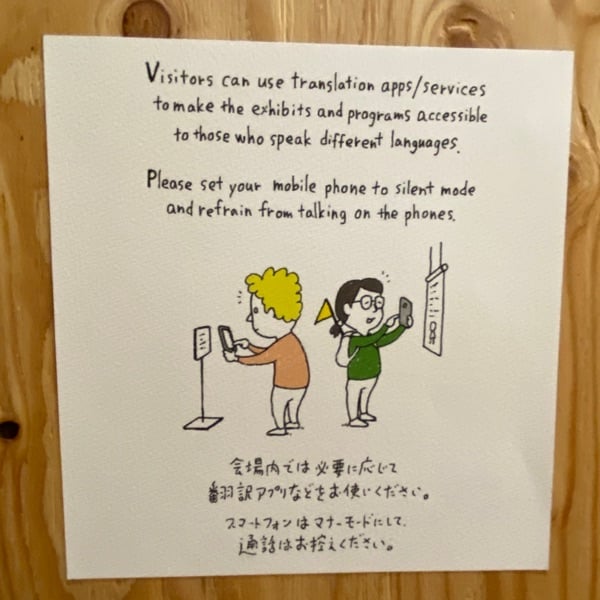 Visitors can use translation apps/services
to make the exhibits and programs accessible
to those who speak different languages.
Please set your mobile phone to silent mode
and refrain from talking on the phones.
会場内では必要に応じて
翻訳アプリなどをお使いください。
スマートフォンはマナーモードにして、
通話はお控えください。